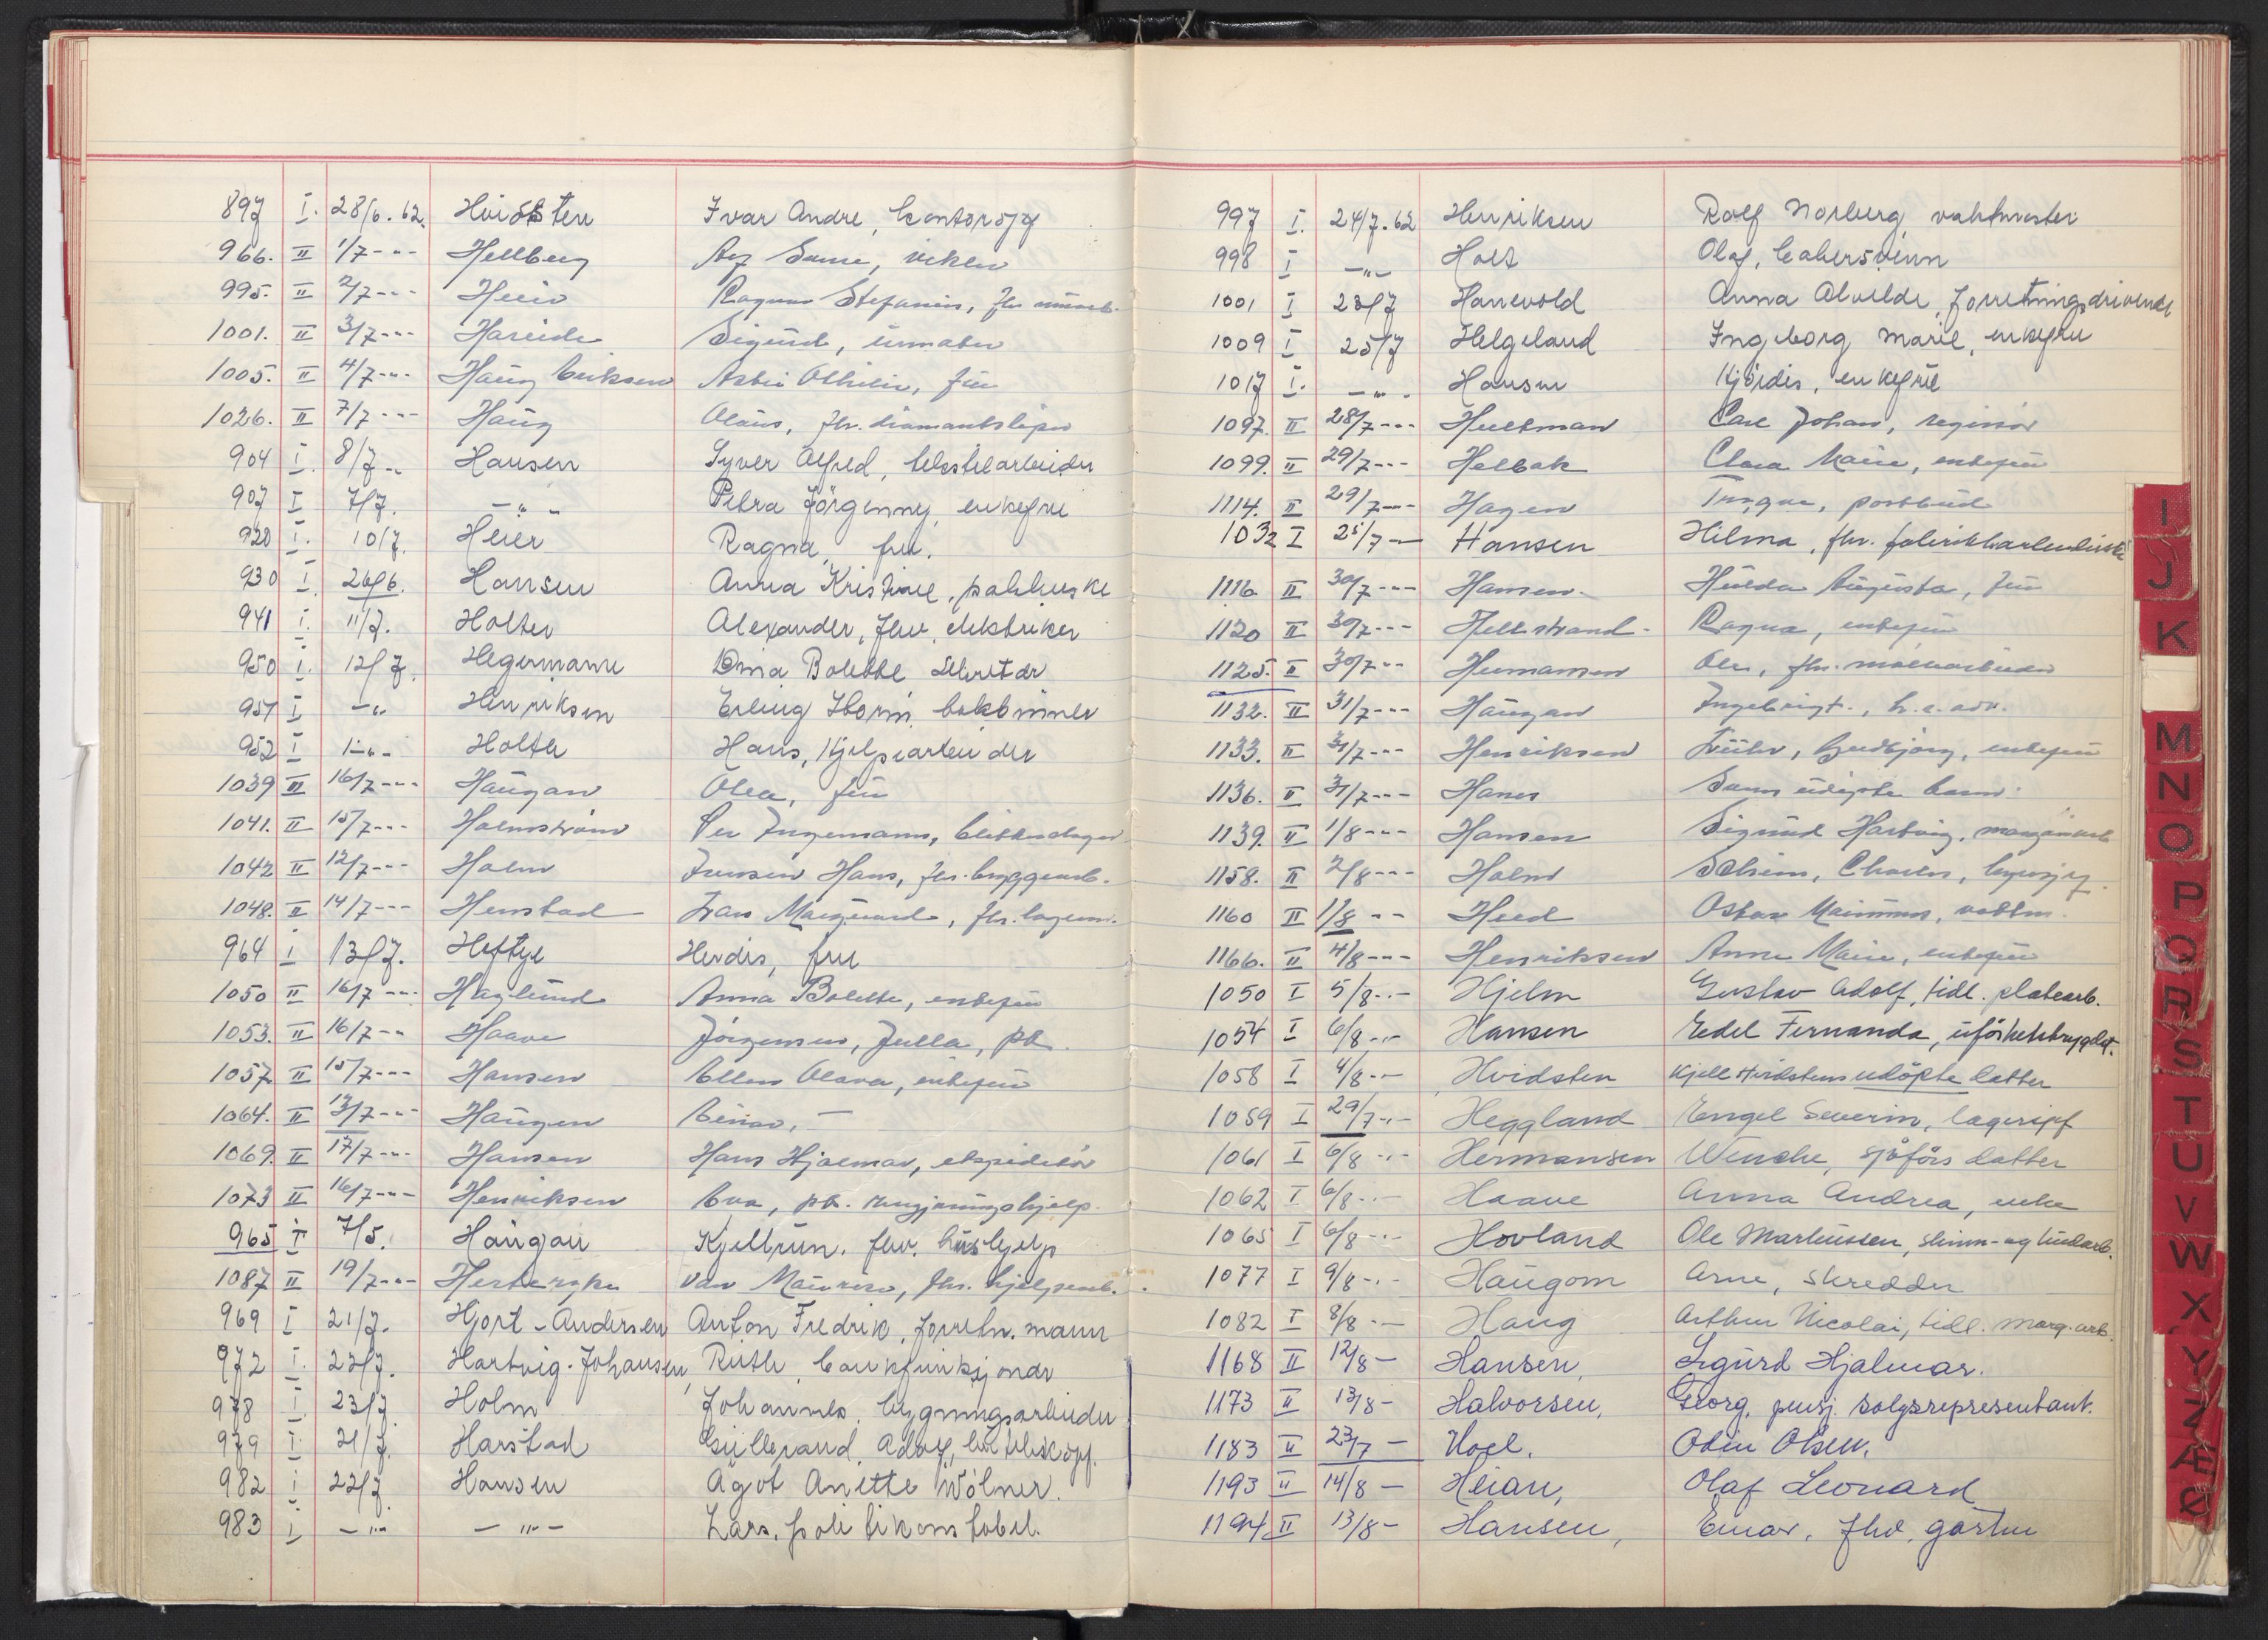 897 I. 28/6.62. Hvidsten Ivar Andre, kontorsjef
966. II 1/7-"- Hellberg
995. II 2/7-"- Ragna Stefanie,
1001. II 3/7-"- Hareide Sigurd, urmaker
1005. II 4/7-"- Haug Eriksen Othilie, fru
1026. II 7/7-"- Haug Olaus, fhv. diamantsliper
904 I. 8/7-" Hansen Syver Alfred, tekstilarbeider
907 I 7/7. -"- Petra Jörginny, enkefru
920 I. 10/7. Heier Ragna, fru.
930 I. 26/6. Hansen Anna Kristine, pakkerske
941 I. 11/7. Holter Alexander, fhv. elektriker
950 I. 12/7. Hegermann Dina Bolette sekretær
951 I -"- Henriksen Erling Thorm. bokbinder
952 I -"- Holth Hans, Hjelpearbeider
1039 II 16/7-"- Haugan Olea, fru
1041. II 15/7-"- Holmström Per Ingemann,
1042 II 12/7-"- Holm Jensen Hans, fhv. bryggearb.
1048. II 14/7-"- Henstad
964 I 13/7. Heftye Herdis, fru
1050 II 16/7-"- Haglund Anna Bolette, enkefru
1053. II 16/7-"- Haave Jörgensen, Julla, pb.
1057 II 15/7-"- Hansen Ellen Olava, enkefru
1064. II 13/7-"- Haugen Einar, —
1069. II 17/7-"- Hansen Hans Hjalmar, ekspeditör
1073 II 16/7-"- Henriksen Eva, pb. rengjöringshjelp.
965 I 7/5. Haugan Kjellrun. fhv. hushjelp
1087 II 19/7-"- van fhv. hjelpearb.
969 I 21/7. Hjort-Andersen Anton Fredrik, forretn. mann
972 I. 23/7. Hartvig-Johansen, Ruth, bankfunksjonær
978 I. 23/7 Holm Johannes, bygningsarbeider
979 I. 21/7. Harstad Gullerand, Adolf,
982 I 22/7. Hansen Agot Anette Wölner.
983 I -"- -"- Lars, politikonstabel.
997 I. 24/7.62 Henriksen Rolf Norberg vaktmester
998 I -"- Holt Olaf,
1001 I 23/7 Hanevold Anna Alvilde, forretningsdrivende
1009 I 25/7 Helgeland Ingeborg Marie, enkefru
1017 I. -"- Hansen Hjördis, enkefru
1097. II 28/7-"- Hultman Carl Johan, regissör
1099. II 29/7-"- Holbak Clara Marie, enkefru
1114. II 29/7-"- Hagen Trygve, postbud
1032 I 25/7- Hansen Hilma, fhv. fabrikkarbeiderske
1116 II 30/7-"- Hansen- Hulda Augusta, fru
1120 II 30/7-"- Hellstrand- Ragna, enkefru
1125. II 30/7-"- Hermansen Ole, fhv.
1132. II 31/7-"- Haugan Ingebrigt., h.r.adv.
1133. II 31/7-"- Henriksen Gudbjörg, enkefru
1136. II 31/7-"- Hanes udöpte barn.
1139. II 1/8-"- Hansen Sigurd Hartvig,
1158. II 2/8-"- Holm Charles,
1160 II 1/8-"-
1166. II 4/8-"- Henriksen Anne Marie, enkefru
1050 I 5/8-"- Hjelm Gustav Adolf, tidl. platearb.
1054 I 6/8-"- Hansen Edel Fernanda, uföretrygdet.
1058 I 4/8-"- Hvidsten Kjell Hvidstens udöpte datter
1059 I 29/7-"- Heggland Engel Severin, lagersjef
1061 I 6/8-"- Hermansen Wenche, sjåförs datter
1062 I 6/8-"- Haave Anna Andrea, enke
1065 I 6/8-"- Hovland Ole Markussen, skinn- og hudarb.
1077 I 9/8-"- Haugom Arne, skredder
1082 I 8/8-"- Haug Arthur Nicolai, tidl. marg.arb.
1168 II 12/8- Hansen, Sigurd Hjalmar.
1173 II 13/8- Halvorsen, Georg, pensj. salgsrepresentant.
1183 II 23/7- Hoel. Odin Olsen.
1193 II 14/8- Heian, Olaf Leonard
1194 II 13/8- Hansen, Einar, fhv. gartner
I
J
K
M
N
O
P
Q
R
S
T
U
V
W
X
Y
Z
Æ
Ø